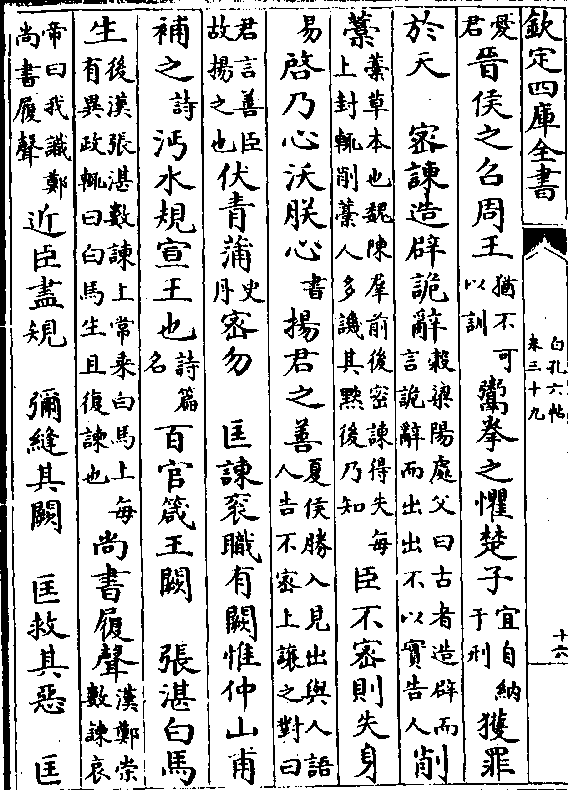 欽定四庫全書
白孔六帖
卷三十九
十六
愛君晉侯之召周王猶不可以訓鬻拳之懼楚子宜自納于刑獲罪
於天 密諫造辟詭辭穀梁陽處父曰古者造辟而言詭辭而出出不以實告人削
藁藁草本也魏陳羣前後密諫得失每上封輒削藁人多譏其黙後乃知臣不密則失身
易啓乃心沃朕心書揚君之善夏侯勝入見出與人語人告不密上讓之對曰
君言善臣故揚之也伏青蒲史丹密勿 匡諫衮職有闕惟仲山甫
補之詩沔水規宣王也詩篇名百官箴王闕 張湛白馬
生後漢張湛數諫上常乘白馬上每有異政輒曰白馬生且復諫也尚書履聲漢鄭崇數諫哀
帝曰我識鄭尚書履聲近臣盡規 彌縫其闕 匡救其惡 匡